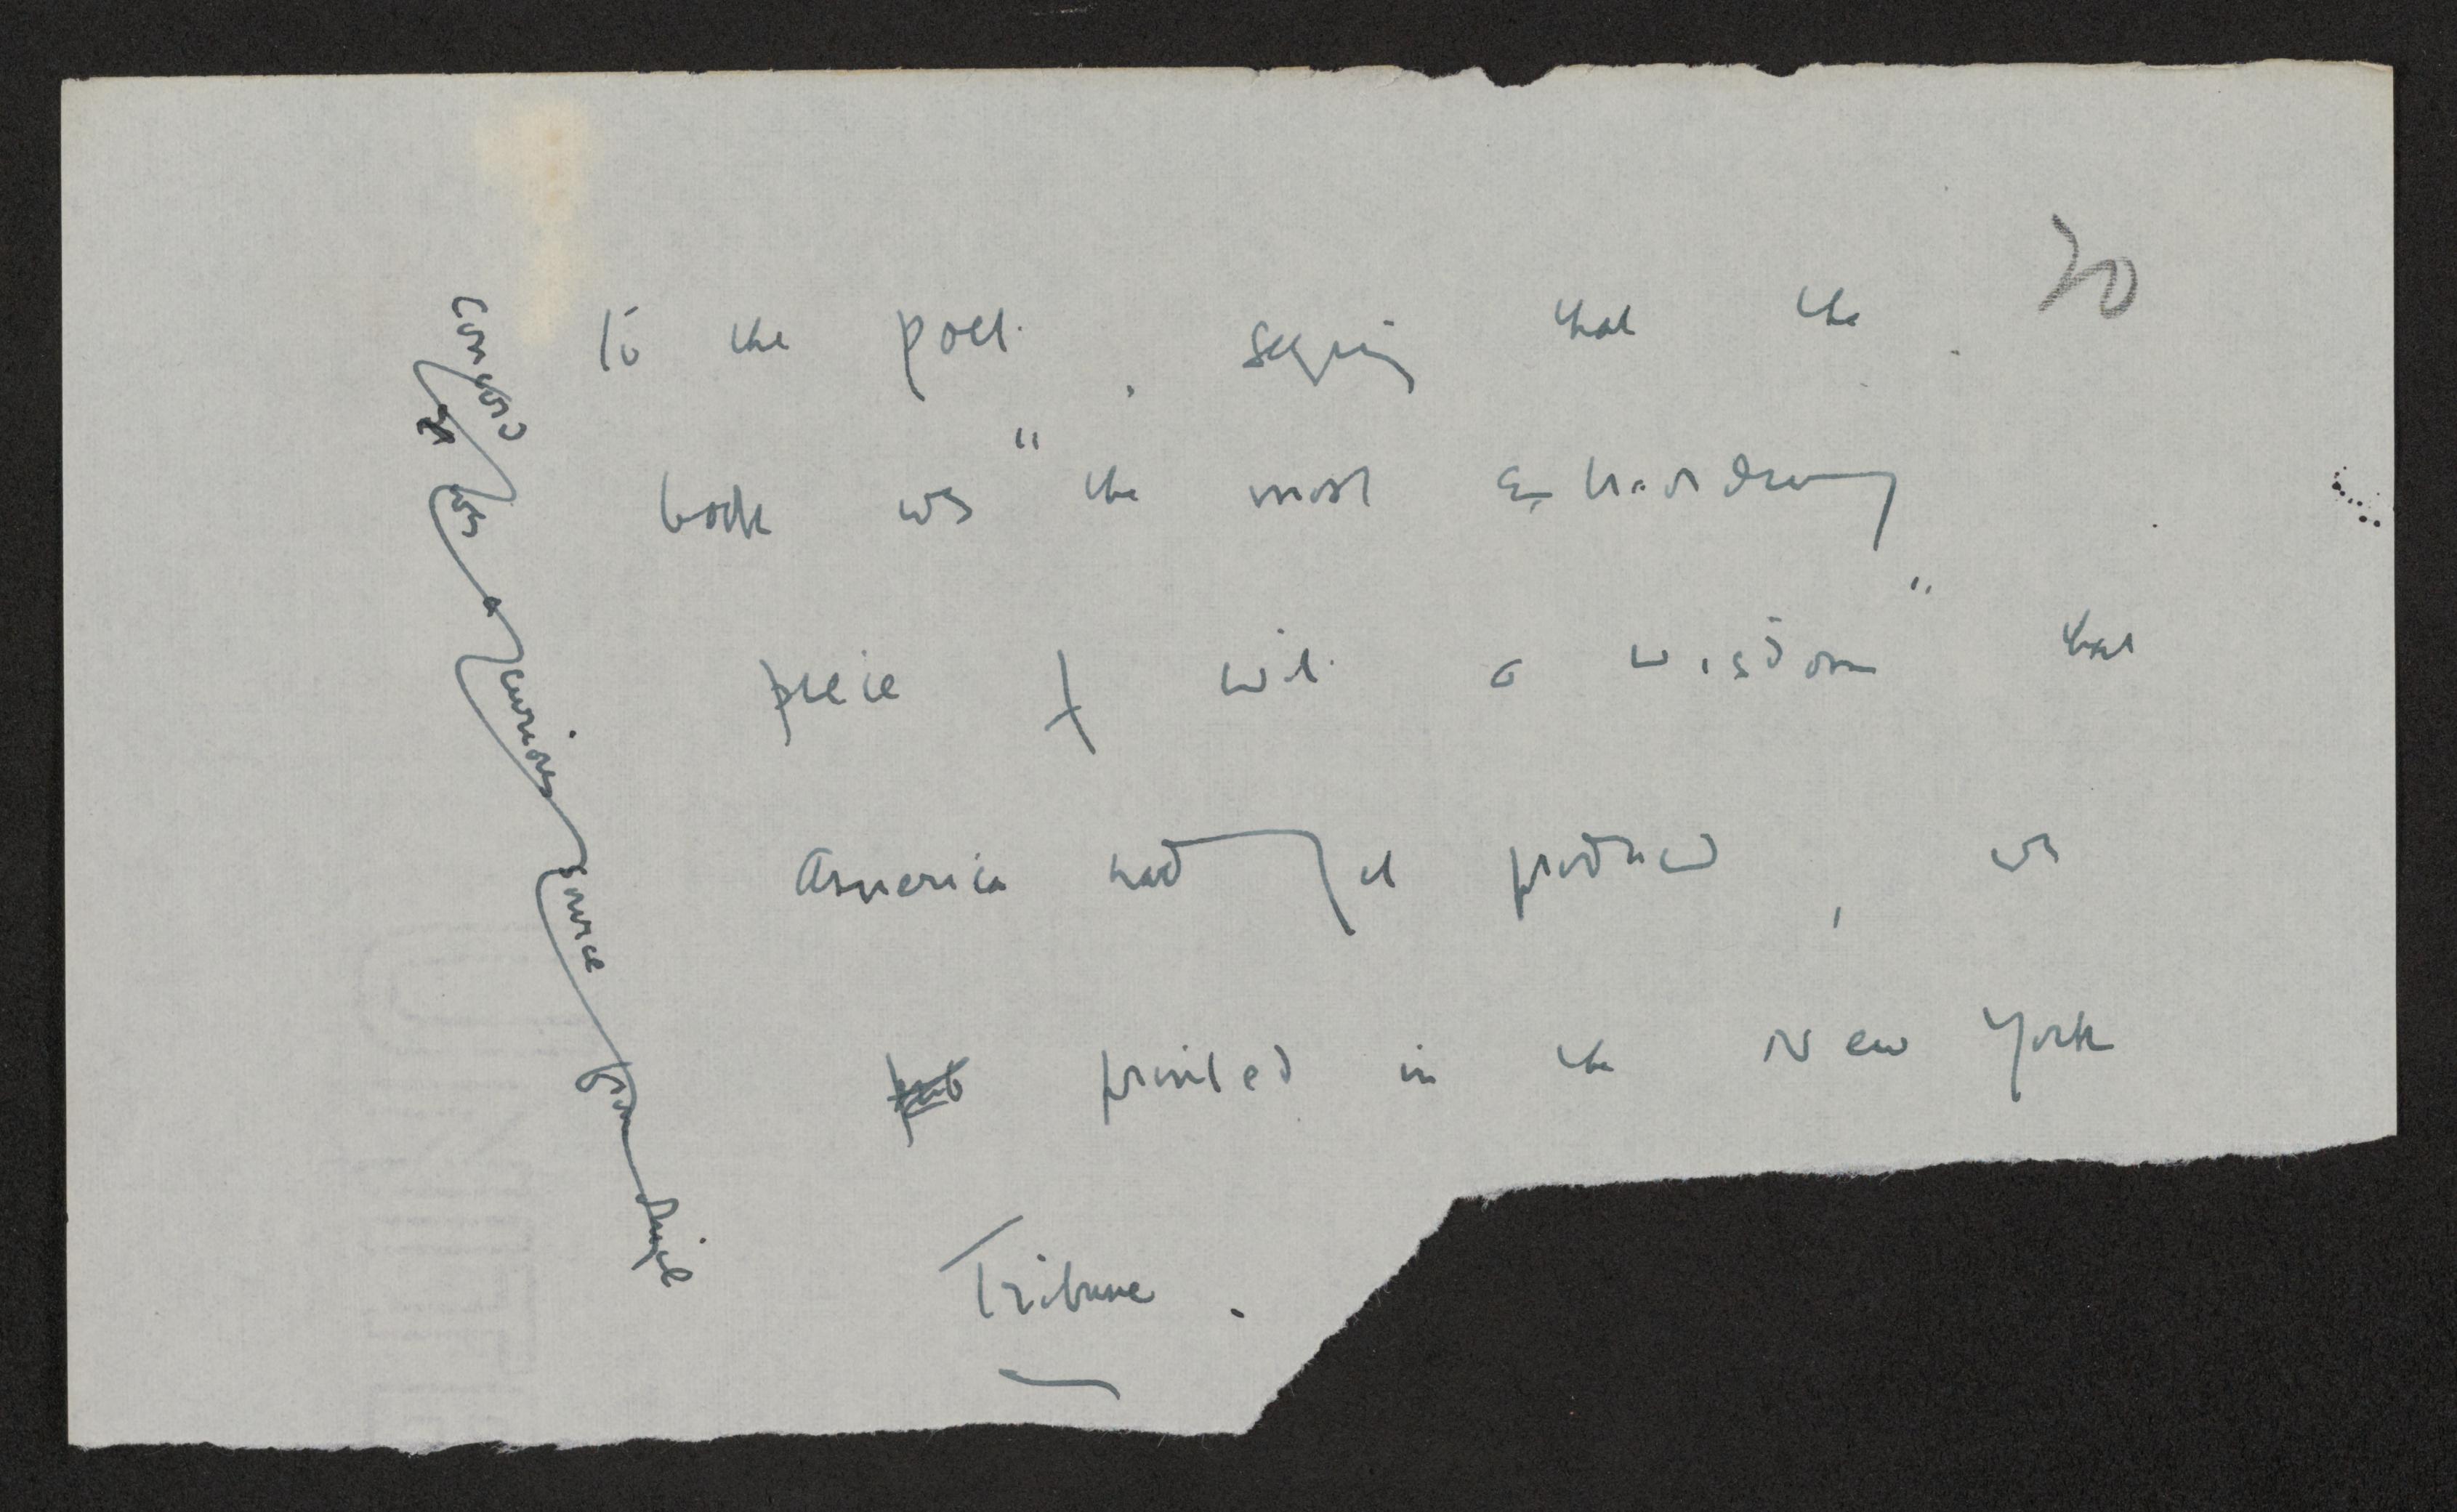 20
to the poet, saying that the
book was "the most extraordinary
piece of wit & wisdom" that
America had yet produced, was
printed in the New York
Tribune.
Concord
was a curious source from